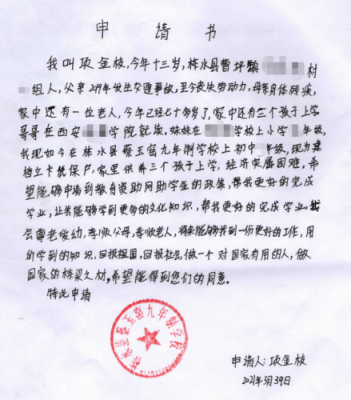 申请书
我叫项金枝,今年十三岁,柞水县曹坪镇 村
组人,父亲 年发生交通事故,至今丧失劳动力,母亲身体残疾,
家中还有一位老人,今年已经七十多岁了,家中还有三个孩子上学
哥哥在西安 学院就读,妹妹在 学校上小学 年级,
我现如今在柞水县蔡玉窑九年制学校上初中 年级,现为建
档立卡低保户,家里供养三个孩子上学,经济实属困难,希
望能够申请到教育资助网助学金的政策,帮我更好的完成
学业,让我能够学到更多的文化知识,帮我更好的完成学业,
会尊老爱幼,孝顺父母,孝敬老人,将来能够找到一份更好的工作,用
所学到的知识,回报祖国,回报社会,做一个对国家有用的人,做
国家的栋梁之材,希望能得到您们的同意。
特此申请
柞水县蔡玉窑九年制学校
申请人:项金枝
2021年 月 日